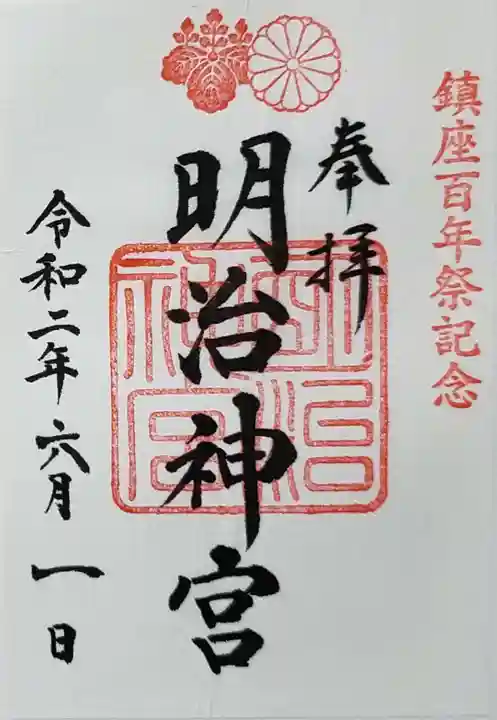 鎮座百年祭記念
奉拝
明治神宮
明治神宮
令和二年六月一日